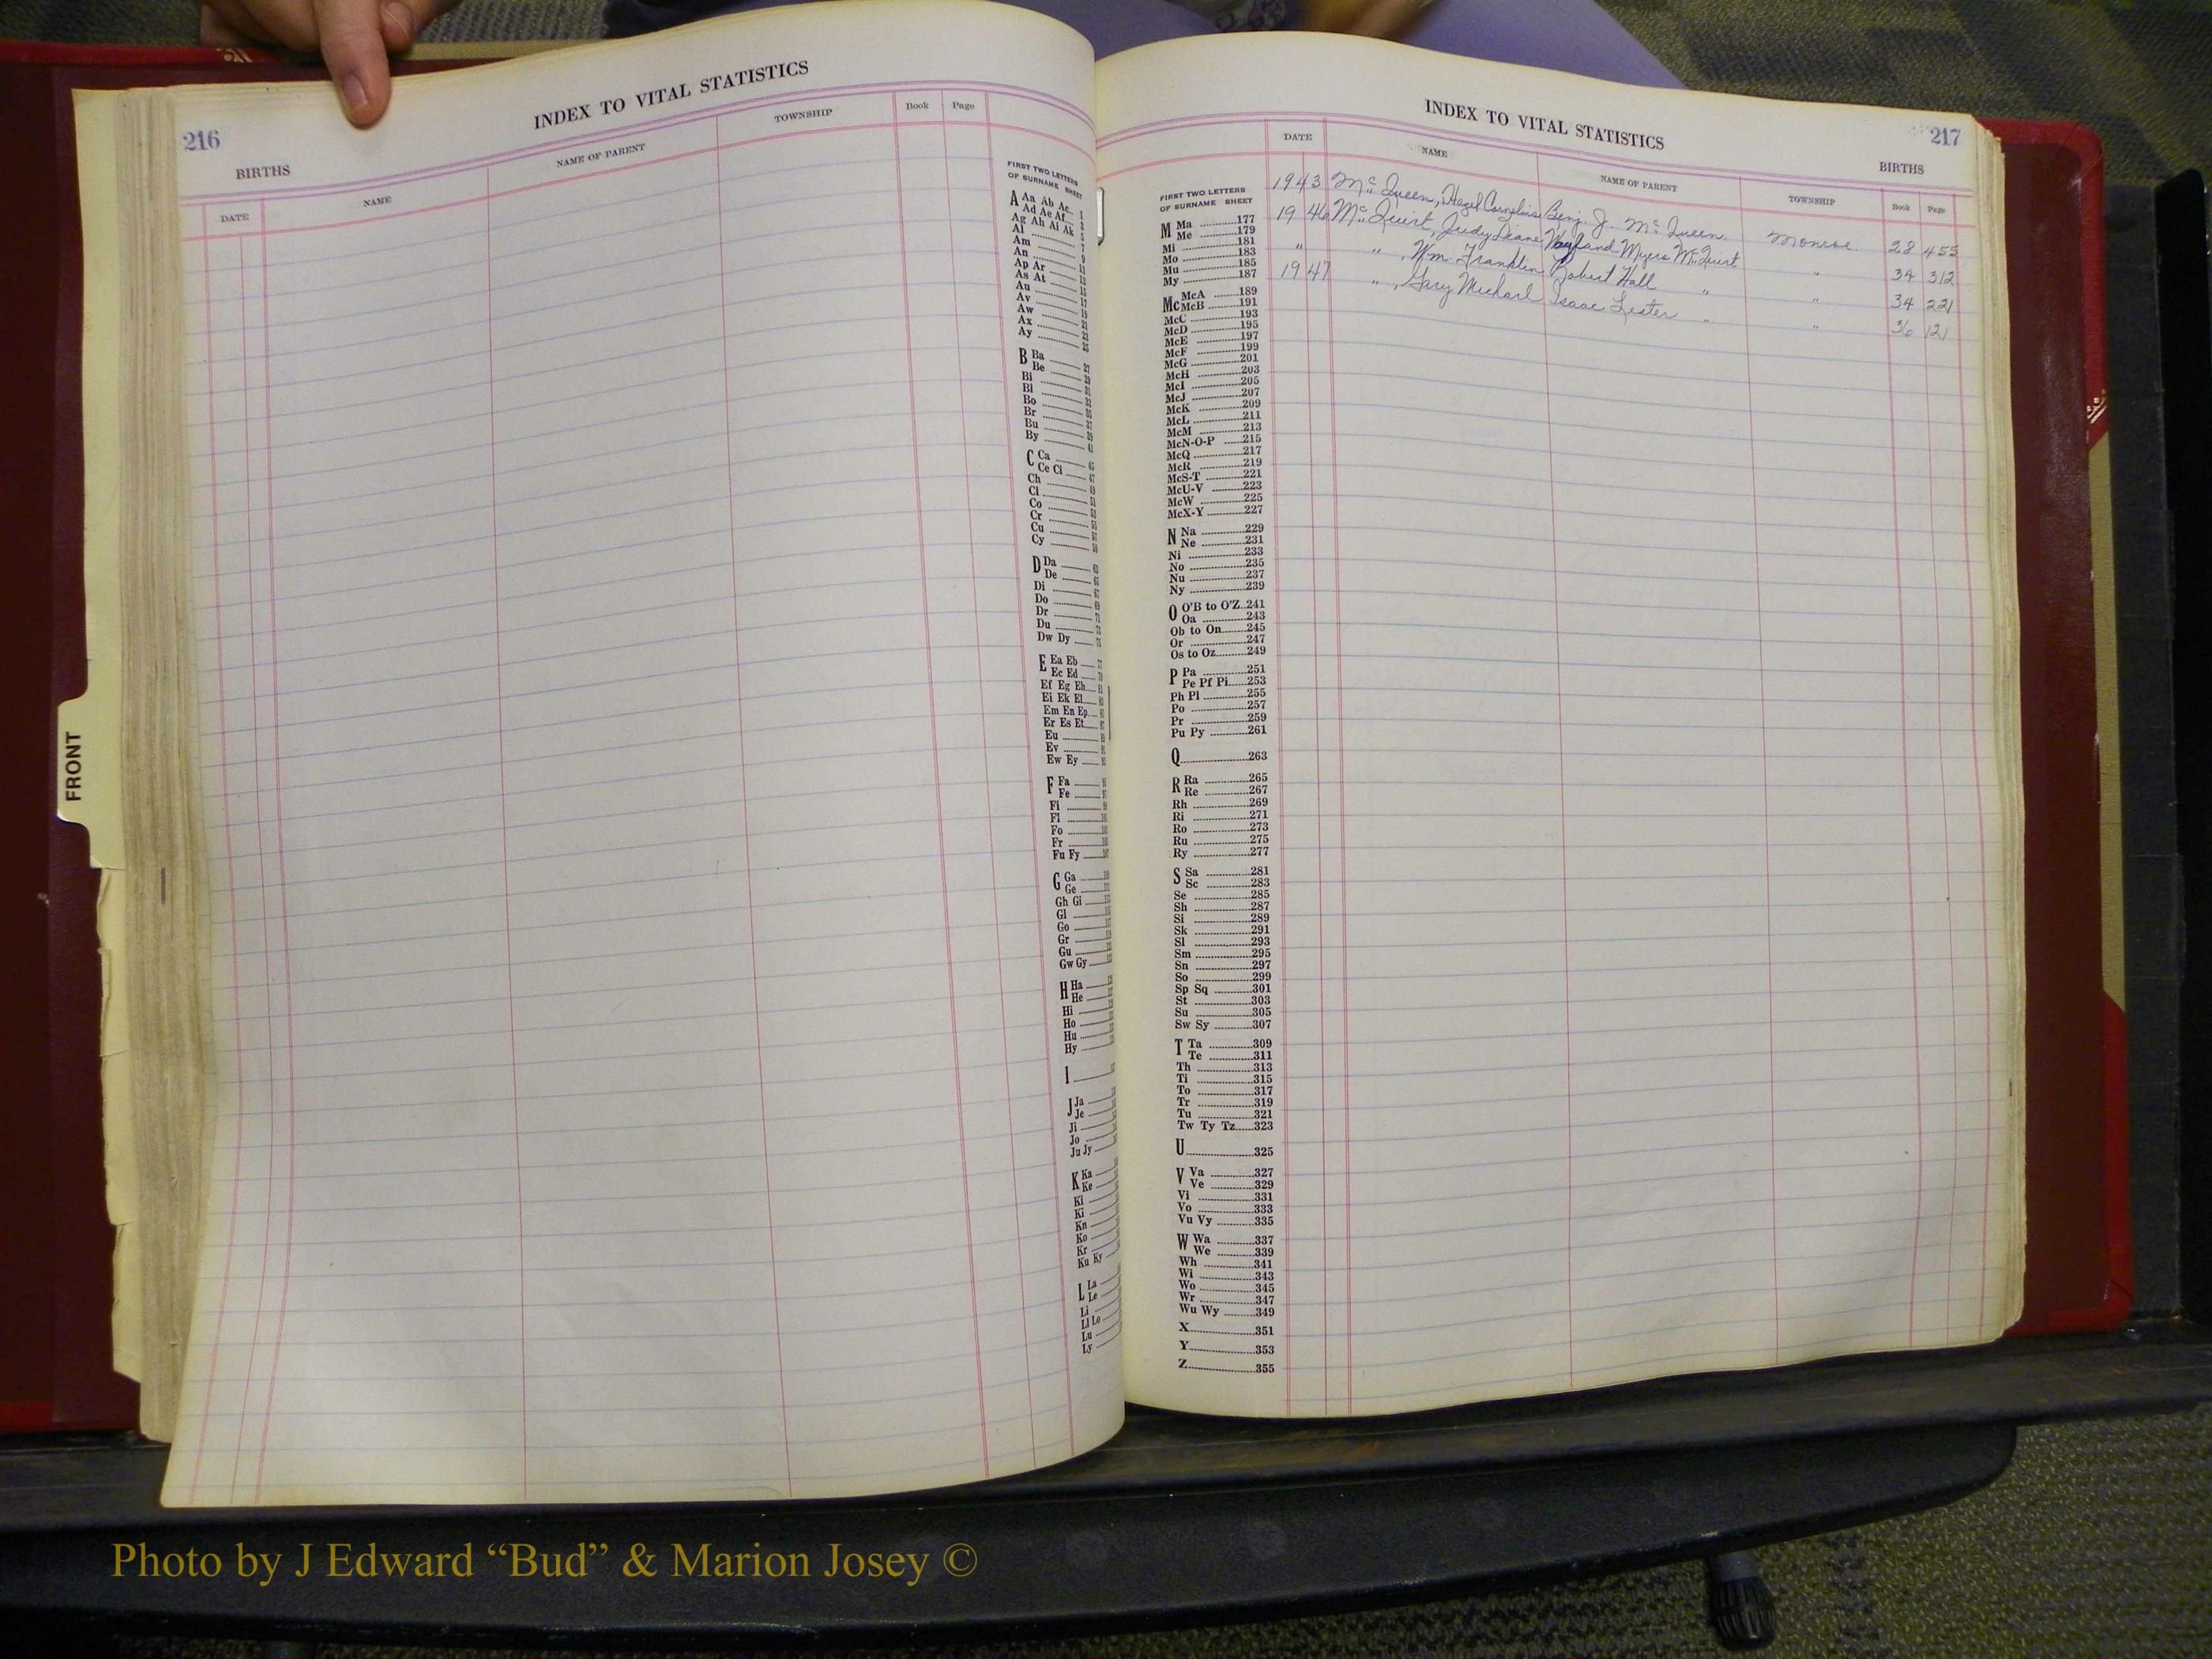 216
INDEX TO VITAL STATISTICS
BIRTHS
DATE NAME NAME OF PARENT TOWNSHIP Book Page
FIRST TWO LETTERS
OF SURNAME SHEET
A Aa Ab Ac 1
Ad Ae Af
Ag Ah Ai Ak
Al
Am
An
Ap Ar
As At
Au
Av
Aw
Ax
Ay
B Ba
Be
Bi
Bl
Bo
Br
Bu
By
C Ca
Ce Ci
Ch
Cl
Co
Cr
Cu
Cy
D Da
De
Di
Do
Dr
Du
Dw Dy
E Ea Eb
Ec Ed
Ef Eg Eh
Ei Ek El
Em En Ep
Er Es Et
Eu
Ev
Ew Ey
F Fa
Fe
Fi
Fl
Fo
Fr
Fu Fy
G Ga
Ge
Gh Gi
Gl
Go
Gr
Gu
Gw Gy
H Ha
He
Hi
Ho
Hu
Hy
I
J Ja
Je
Ji
Jo
Ju Jy
K Ka
Ke
Ki
Ki
Kn
Ko
Kr
Ku Ky
L La
Le
Li
Ll Lo
Lu
Ly
FRONT
INDEX TO VITAL STATISTICS
217
BIRTHS
DATE NAME NAME OF PARENT TOWNSHIP Book Page
1943 McQueen, Hazel Cornelius Benj. J. McQueen Monroe 28 455
1946 McQuirt, Judy Diane Wayland Myers McQuirt " 34 312
" " , Wm. Franklin Robert Hall " " 34 221
1947 " , Gary Michael Isaac Lester " " 36 121
FIRST TWO LETTERS
OF SURNAME SHEET
M Ma 177
Me 179
Mi 181
Mo 183
Mu 185
My 187
Mc McA 189
McB 191
McC 193
McD 195
McE 197
McF 199
McG 201
McH 203
McI 205
McJ 207
McK 209
McL 211
McM 213
McN-O-P 215
McQ 217
McR 219
McS-T 221
McU-V 223
McW 225
McX-Y 227
N Na 229
Ne 231
Ni 233
No 235
Nu 237
Ny 239
O O'B to O'Z 241
Oa 243
Ob to On 245
Or 247
Os to Oz 249
P Pa 251
Pe Pf Pi 253
Ph Pl 255
Po 257
Pr 259
Pu Py 261
Q 263
R Ra 265
Re 267
Rh 269
Ri 271
Ro 273
Ru 275
Ry 277
S Sa 281
Sc 283
Se 285
Sh 287
Si 289
Sk 291
Sl 293
Sm 295
Sn 297
So 299
Sp Sq 301
St 303
Su 305
Sw Sy 307
T Ta 309
Te 311
Th 313
Ti 315
To 317
Tr 319
Tu 321
Tw Ty Tz 323
U 325
V Va 327
Ve 329
Vi 331
Vo 333
Vu Vy 335
W Wa 337
We 339
Wh 341
Wi 343
Wo 345
Wr 347
Wu Wy 349
X 351
Y 353
Z 355
Photo by J Edward “Bud” & Marion Josey ©